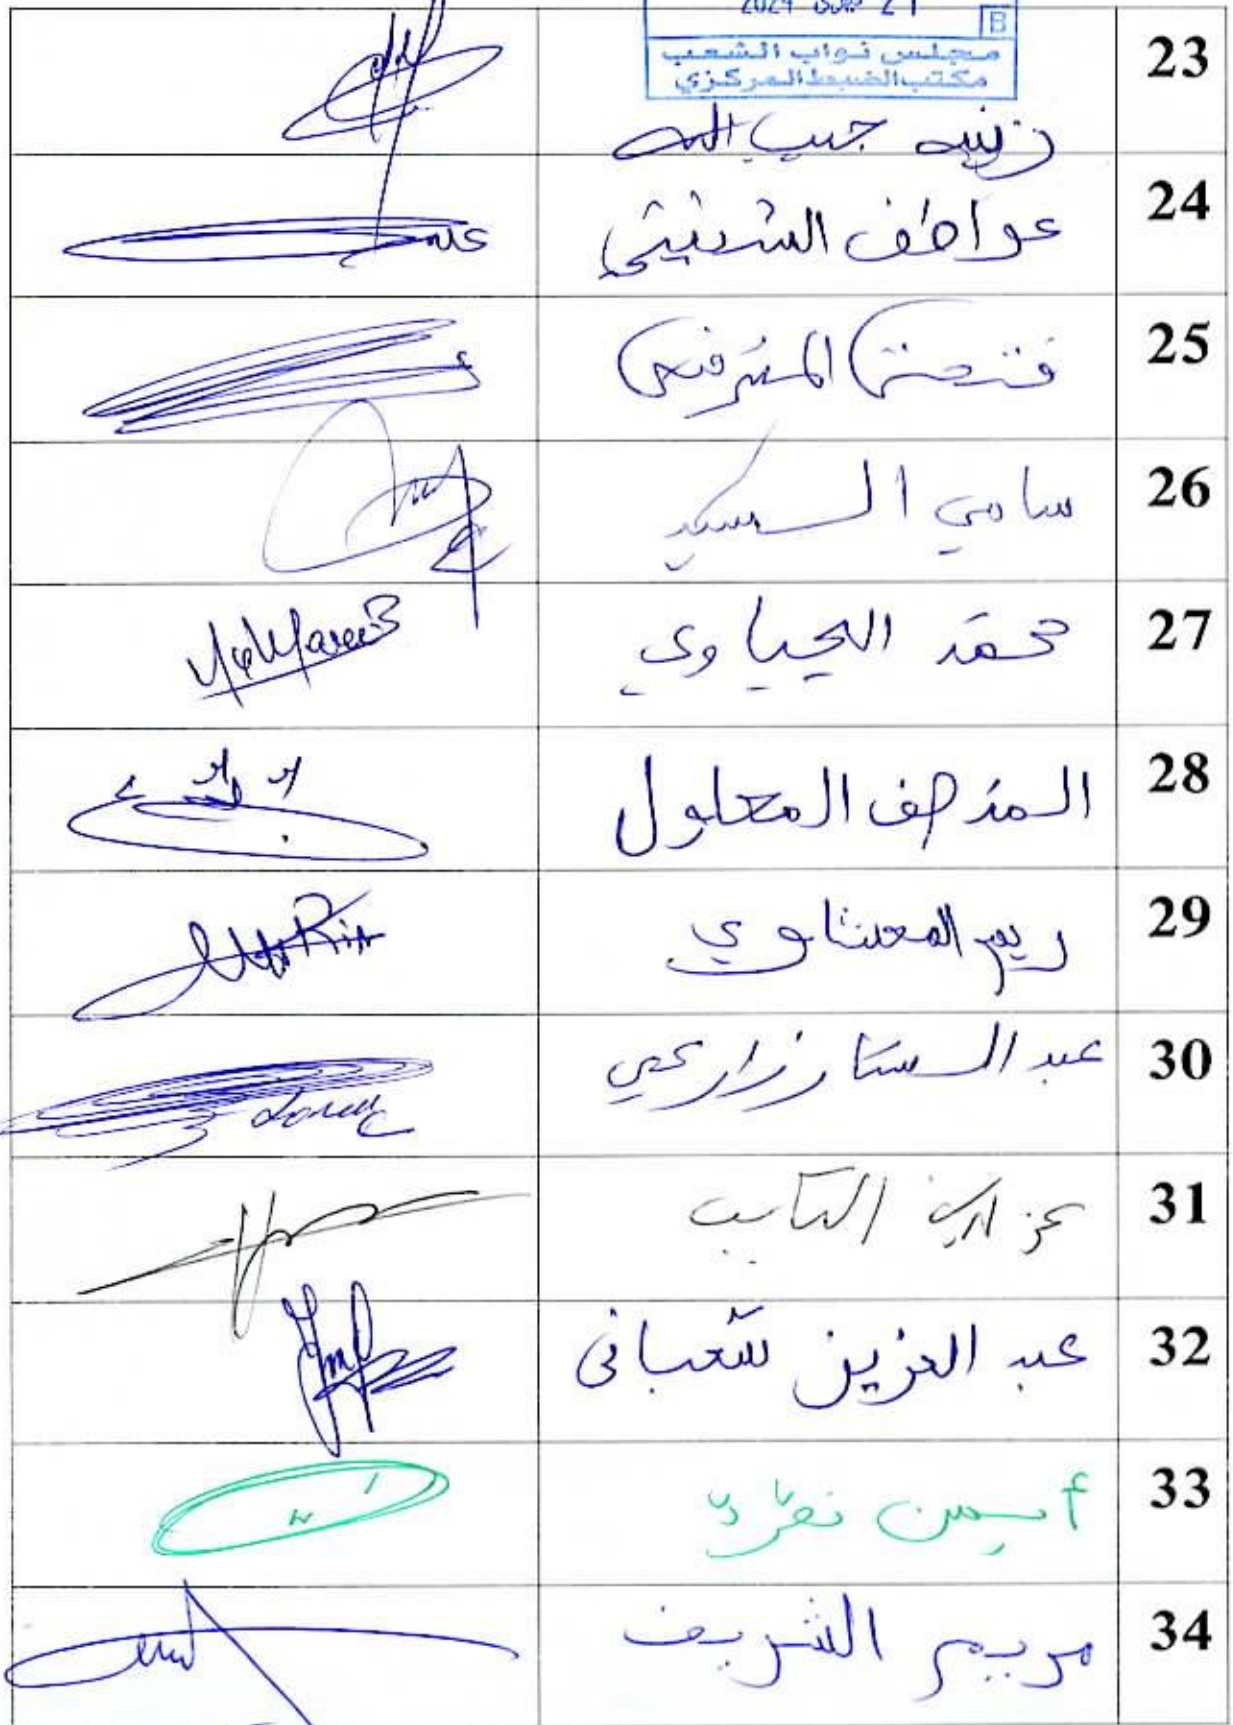 21 جوان 2024
B
مجلس نواب الشعب
مكتب الضبط المركزي
23
زينب جيب الله
24
عواطف الشنيتي
25
المشرفي
26
سامي السيد
27
محمد اليحياوي
28
المنصف المعلول
29
ريم المعشاوي
30
عبد الستار زارعي
31
عز الدين التايب
32
عبد العزيز شعباني
33
أيمن نقرة
34
مريم الشريف